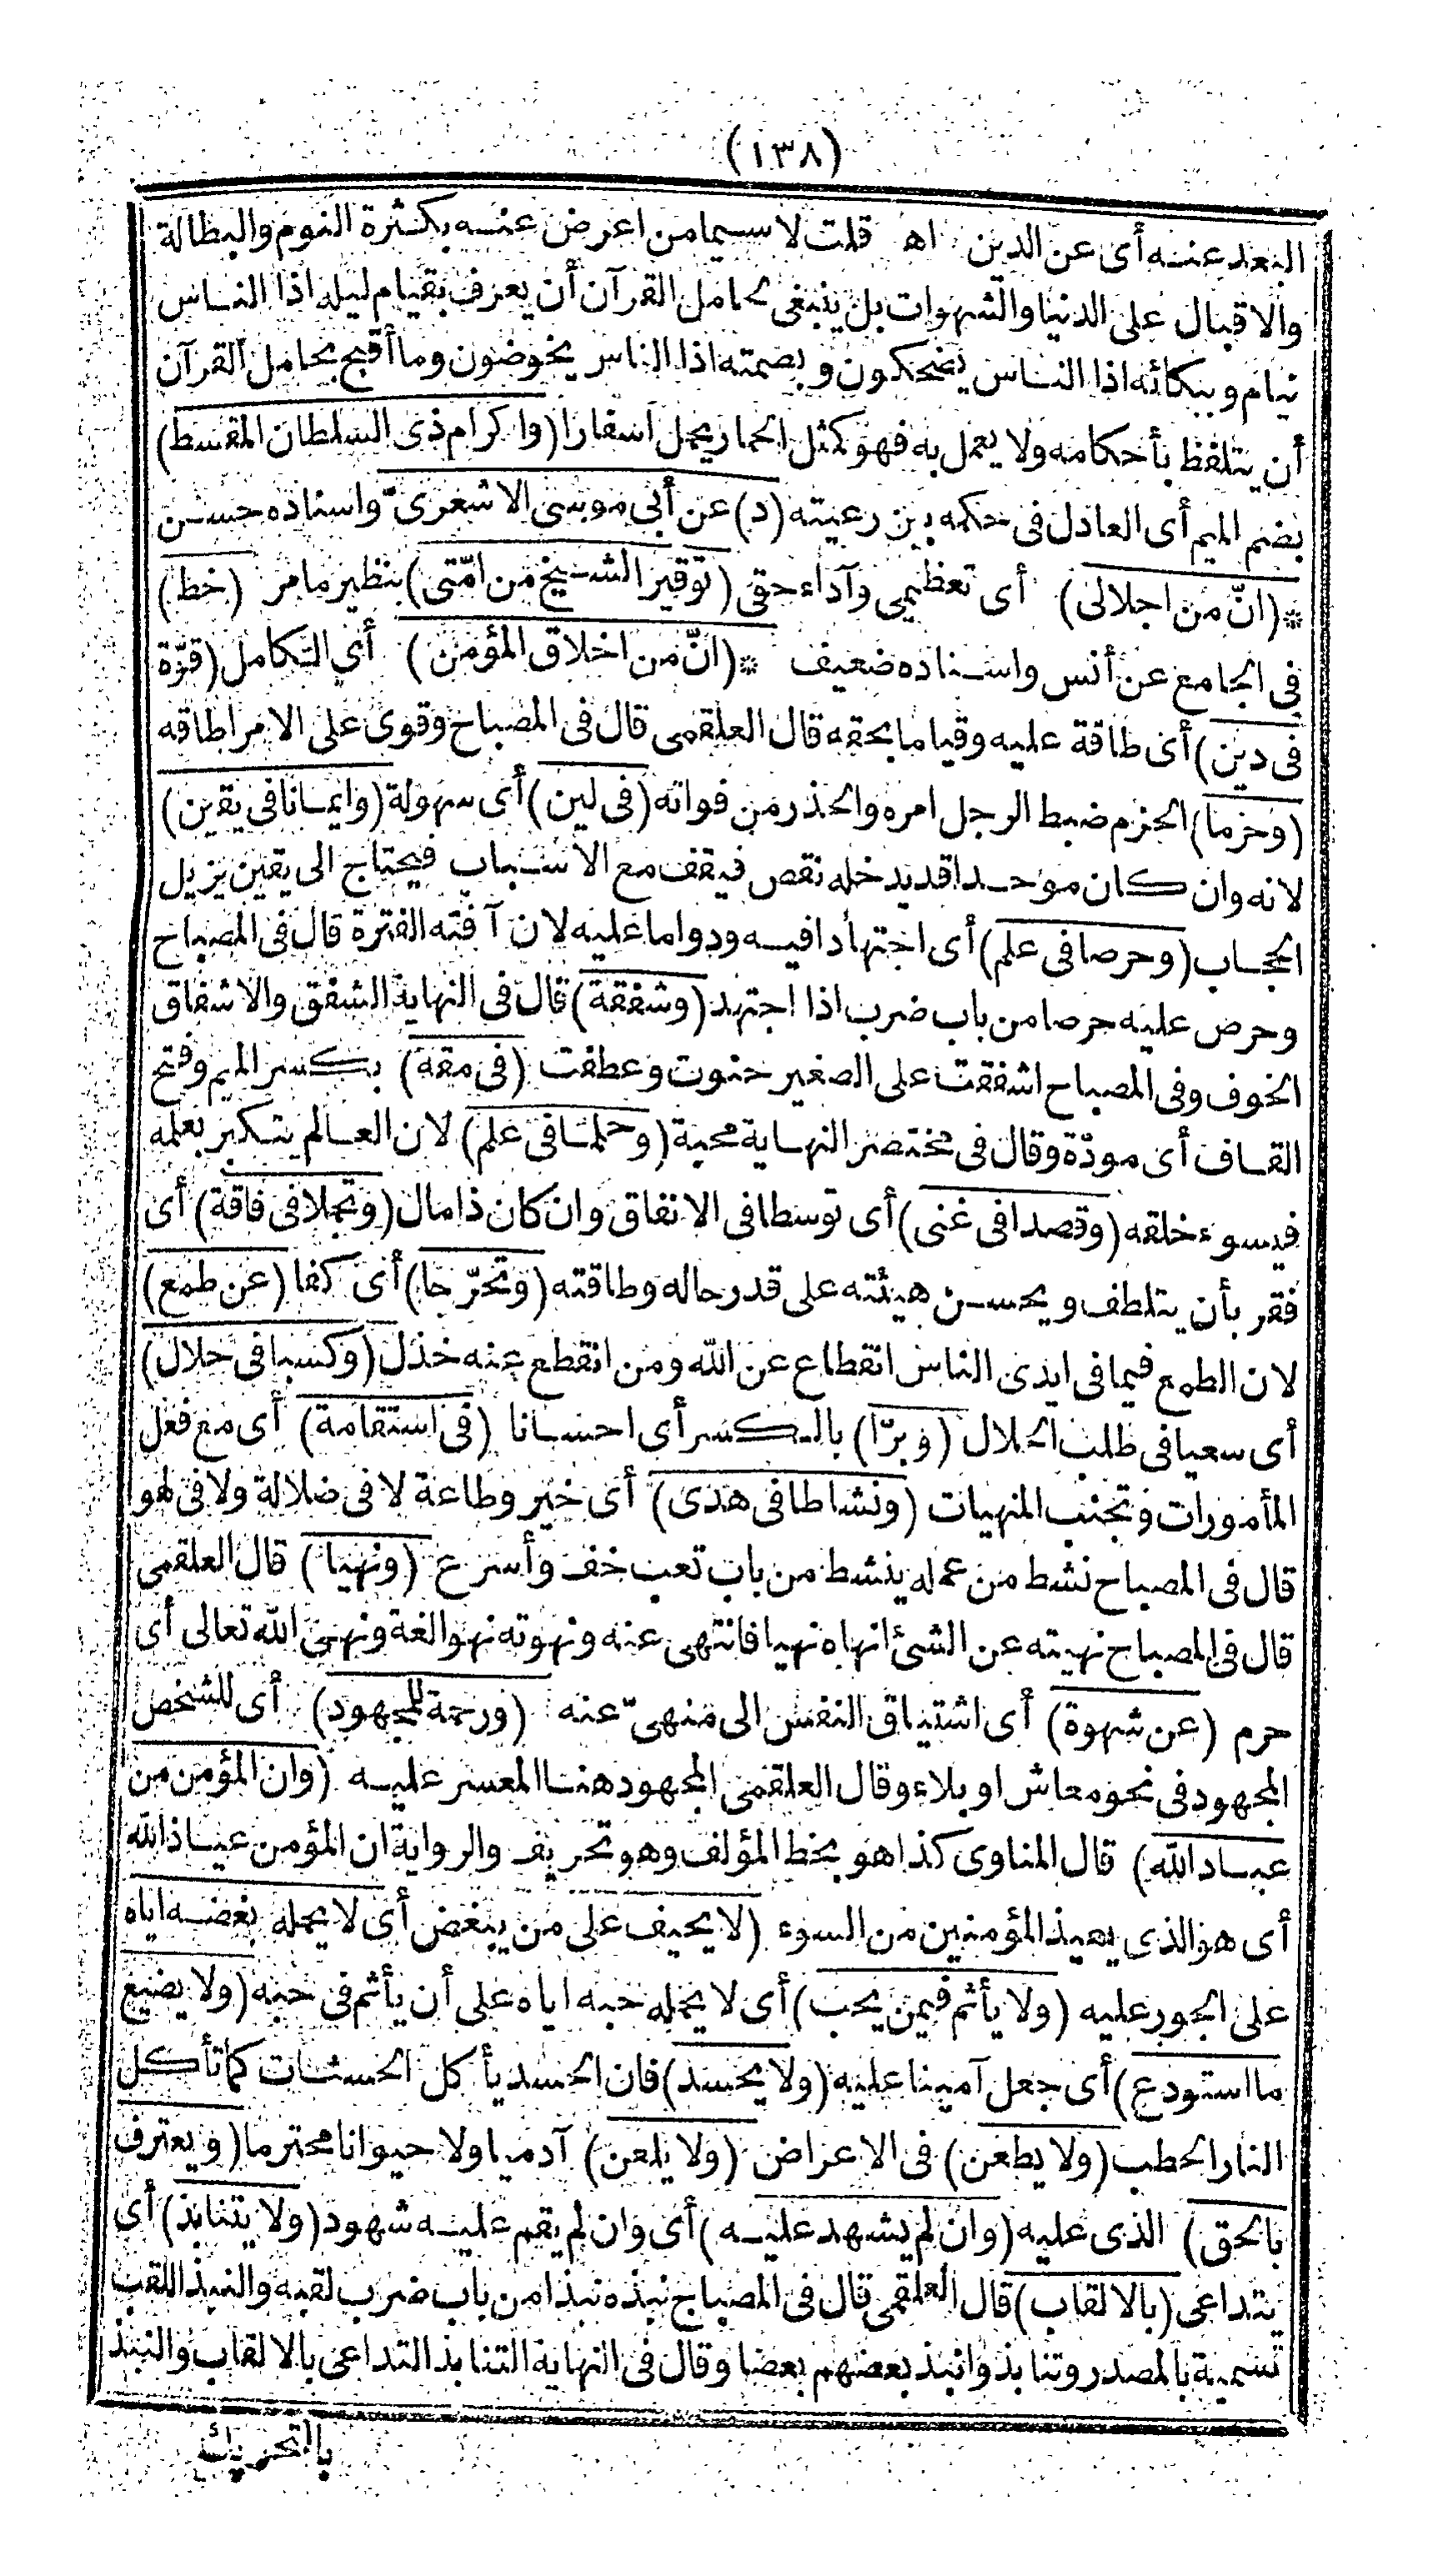 (١٣٨)
البعد عنه أى عن الدين اه قلت لا سيما من اعرض عنه بكثرة النوم والبطالة
والاقبال على الدنيا والشهوات بل ينبغى لحامل القرآن أن يعرف بقيام ليله اذا الناس
نيام وببكائه اذا الناس يضحكون وبصمته اذا الناس يخوضون وما أقبح بحامل القرآن
أن يتلفظ بأحكامه ولا يعمل به فهو كمثل الحمار يحمل اسفارا (واكرام ذى السلطان المقسط)
بضم الميم أى العادل فى حكمه بين رعيته (د) عن أبى موسى الاشعرىّ واسناده حسن
* (انّ من اجلالى) أى تعظيمى وآداء حقى (توقير الشيخ من امّتى) بنظير ما مر (خط)
فى الجامع عن أنس واسناده ضعيف * (انّ من اخلاق المؤمن) أى التكامل (قوّة
فى دين) أى طاقة عليه وقياما بحقه قال العلقمى قال فى المصباح وقوى على الامر اطاقه
(وحزما) الحزم ضبط الرجل امره والحذر من فواته (فى لين) أى سهولة (وايمانا فى يقين)
لانه وان كان موحدا قد يدخله نقص فيقف مع الاسباب فيحتاج الى يقين يزيل
الحجاب (وحرصا فى علم) أى اجتهادا فيه ودواما عليه لان آفته الفترة قال فى المصباح
وحرص عليه حرصا من باب ضرب اذا اجتهد (وشفقة) قال فى النهاية الشفق والاشفاق
الخوف وفى المصباح اشفقت على الصغير حنوت وعطفت (فى مقة) بكسر الميم وفتح
القاف أى مودّة وقال فى مختصر النهاية محبة (وحلما فى علم) لان العالم يتكبر بعلمه
فيسوء خلقه (وقصدا فى غنى) أى توسطا فى الانفاق وان كان ذا مال (وتجملا فى فاقة) أى
فقر بأن يتلطف ويحسن هيئته على قدر حاله وطاقته (وتحرّجا) أى كفا (عن طمع)
لان الطمع فيما فى ايدى الناس انقطاع عن الله ومن انقطع عنه خذل (وكسبا فى حلال)
أى سعيا فى طلب الحلال (وبرّا) بالكسر أى احسانا (فى استقامة) أى مع فعل
المأمورات وتجنب المنهيات (ونشاطا فى هدى) أى خير وطاعة لا فى ضلالة ولا فى لهو
قال فى المصباح نشط من عمله ينشط من باب تعب خف وأسرع (ونهيا) قال العلقمى
قال فى المصباح نهيته عن الشئ انهاه نهيا فانتهى عنه ونهوته نهوا لغة ونهى الله تعالى أى
حرم (عن شهوة) أى اشتياق النفس الى منهىّ عنه (ورحمة للمجهود) أى للشخص
المجهود فى نحو معاش او بلاء وقال العلقمى المجهود هنا المعسر عليه (وان المؤمن من
عباد الله) قال المناوى كذا هو بخط المؤلف وهو تحريف والرواية ان المؤمن عياذ الله
أى هو الذى يعيذ المؤمنين من السوء (لا يحيف على من يبغض أى لا يحمله بغضه اياه
على الجور عليه (ولا يأثم فيمن يحب) أى لا يحمله حبه اياه على أن يأثم فى حبه (ولا يضيع
ما استودع) أى جعل آمينا عليه (ولا يحسد) فان الحسد يأكل الحسنات كما تأكل
النار الحطب (ولا يطعن) فى الاعراض (ولا يلعن) آدميا ولا حيوانا محترما (ويعترف
بالحق) الذى عليه (وان لم يشهد عليه) أى وان لم يقم عليه شهود (ولا يتنابذ) أى
يتداعى (بالالقاب) قال العلقمى قال فى المصباح نبذه نبذا من باب ضرب لقبه والنبذ اللقب
تسمية بالمصدر وتنابذوا نبذ بعضهم بعضا وقال فى النهاية التنابذ التداعى بالالقاب والنبذ
بالتحريك